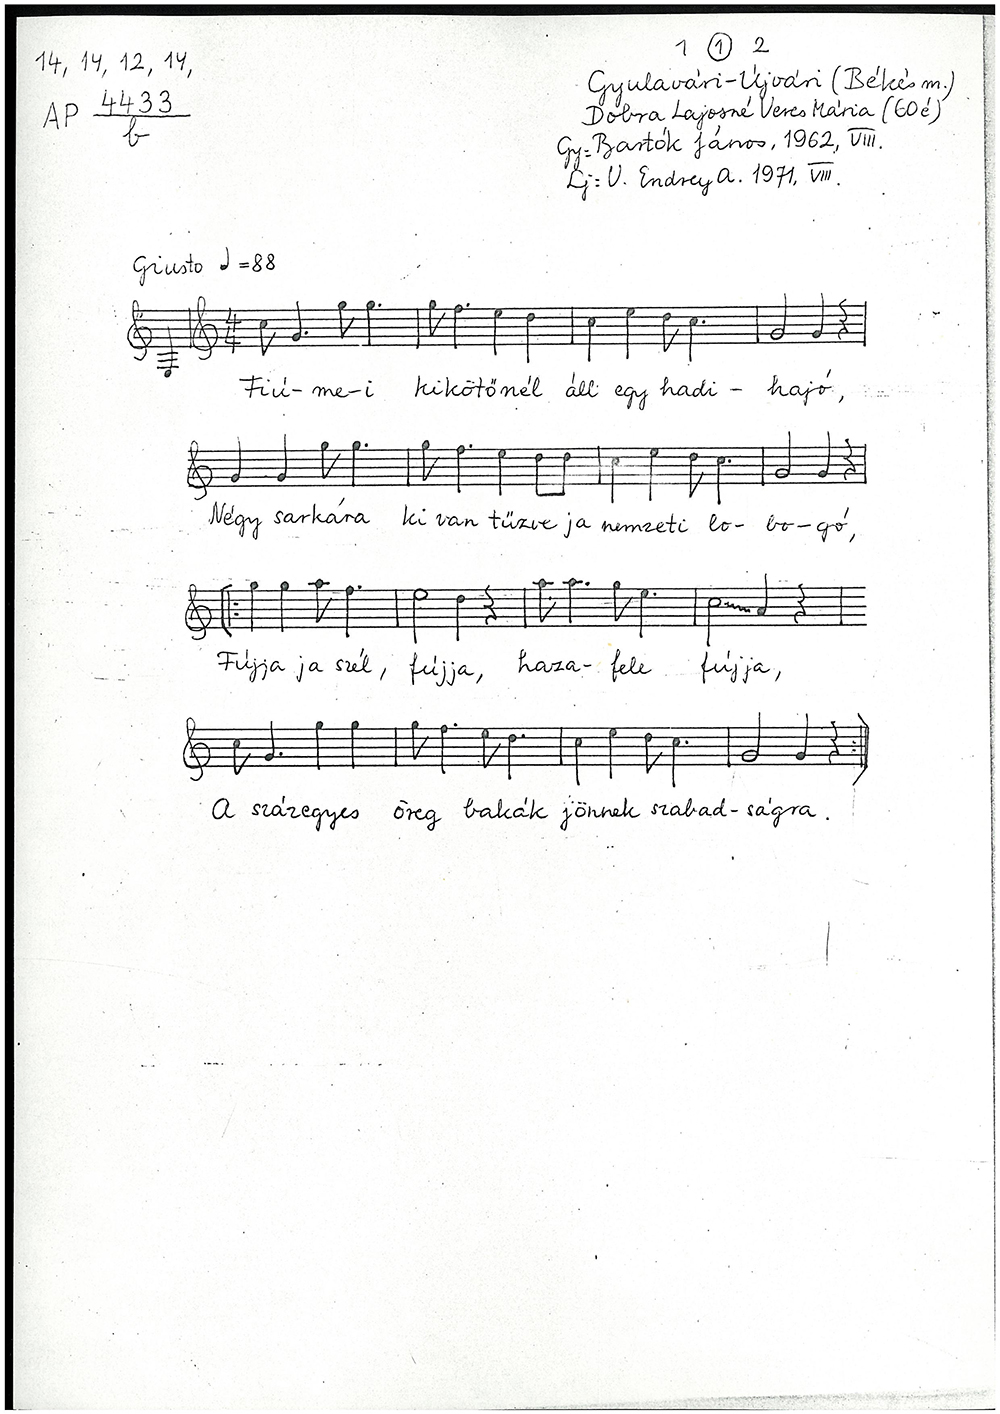 14, 14, 12, 14,
AP 4433
b
1 ① 2
Gyulavári-Újvári (Békés m.)
Dobra Lajosné Veres Mária (60é)
Gy= Bartók János, 1962, VIII.
Lj= V. Endrey A. 1971, VIII.
Giusto ♩=88
4
4
Fiú- me-i kikötőnél áll egy hadi - hajó,
Négy sarkára ki van tűzve ja nemzeti lo- bo-gó,
Fújja ja szél, fújja, haza- fele fújja,
A százegyes öreg bakák jönnek szabad-ságra.